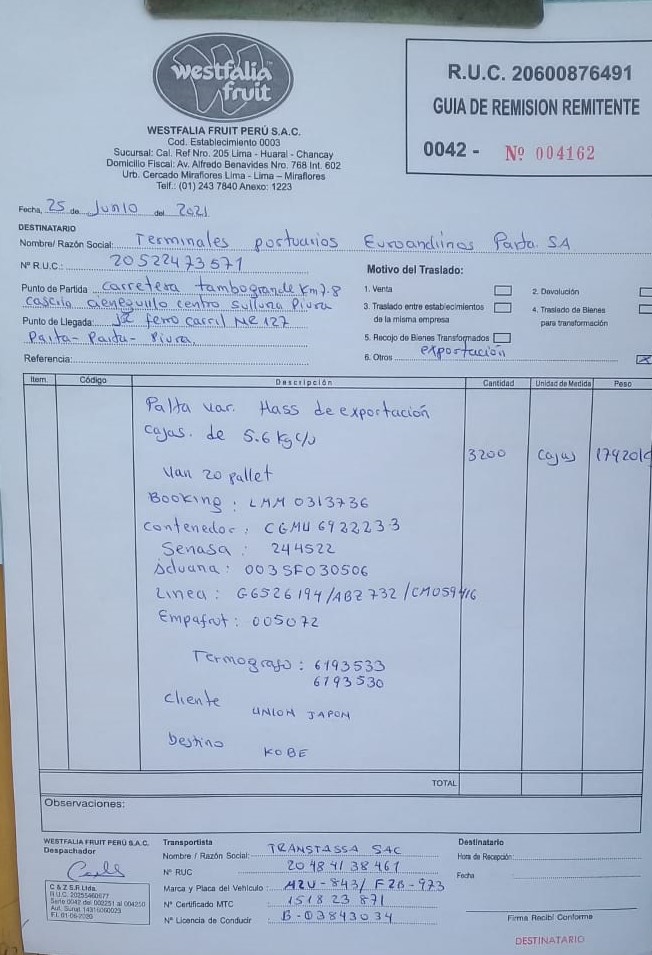 westfalia
fruit
WESTFALIA FRUIT PERÚ S.A.C.
Cod. Establecimiento 0003
Sucursal: Cal. Ref Nro. 205 Lima - Huaral - Chancay
Domicilio Fiscal: Av. Alfredo Benavides Nro. 768 Int. 602
Urb. Cercado Miraflores Lima - Lima – Miraflores
Telf.: (01) 243 7840 Anexo: 1223
R.U.C. 20600876491
GUIA DE REMISION REMITENTE
0042 - Nº 004162
Fecha, 25 de Junio del 2021
DESTINATARIO
Nombre/ Razón Social: Terminales portuarios Euroandinos Paita. SA
Nº R.U.C.: 20522473571
Motivo del Traslado:
Punto de Partida carretera tambogrande Km 7.8
cascilo cieneguillo centro sullana Piura
Punto de Llegada: ferro carril NR 127
Paita- Paita- Piura
Referencia:
1. Venta
2. Devolución
3. Traslado entre establecimientos
de la misma empresa
4. Traslado de Bienes
para transformación
5. Recojo de Bienes Transformados
6. Otros exportación
Item. Código Descripción Cantidad Unidad de Medida Peso
Palta var. Hass de exportación
cajas. de 5.6 kg c/u
3200 cajas
Van 20 pallet
Booking : LMM 0313736
Contenedor : CGMU 6922233
Senasa : 244522
Aduana : 003SF030506
Linea : G6526194/ABZ732/CM059416
Empafrut : 005072
Termografo : 6193533
6193530
Cliente
UNION JAPON
Destino
KOBE
TOTAL
Observaciones:
WESTFALIA FRUIT PERÚ S.A.C.
Despachador
C & Z S.R.Ltda.
R.U.C. 20255460677
Serie 0042 del 002251 al 004250
F.I. 01-06-2020
Transportista
Nombre / Razón Social: TRANSTASSA SAC
Nº RUC 20484138461
Marca y Placa del Vehículo : AZU-843/ F2B-973
Nº Certificado MTC 151823871
Nº Licencia de Conducir B-03843034
Destinatario
Hora de Recepción:
Fecha
Firma Recibí Conforme
DESTINATARIO